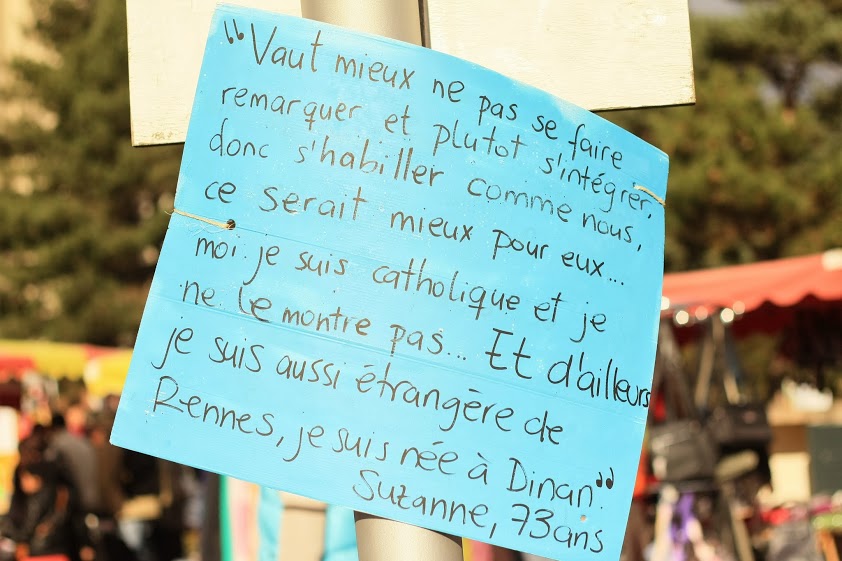 "Vaut mieux ne pas se faire
remarquer et plutot s'intégrer,
donc s'habiller comme nous,
ce serait mieux pour eux...
moi je suis catholique et je
ne le montre pas... Et d'ailleurs
je suis aussi étrangère de
Rennes, je suis née à Dinan"
Suzanne, 73ans